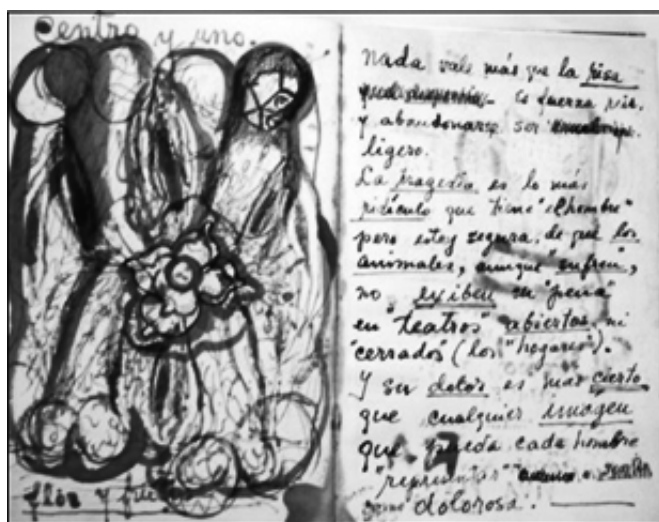 Centro y uno.
flor y
Nada vale más que la risa
Es fuerza reir
y abandonarse. ser
ligero.
La tragedia es lo más
ridículo que tiene "el hombre"
pero estoy segura, de que los
animales, aunque "sufren",
no exiben su "pena"
en "teatros" abiertos, ni
"cerrados" (los "hogares").
Y su dolor es más cierto
que cualquier imagen
que pueda cada hombre
"representar"
como dolorosa.